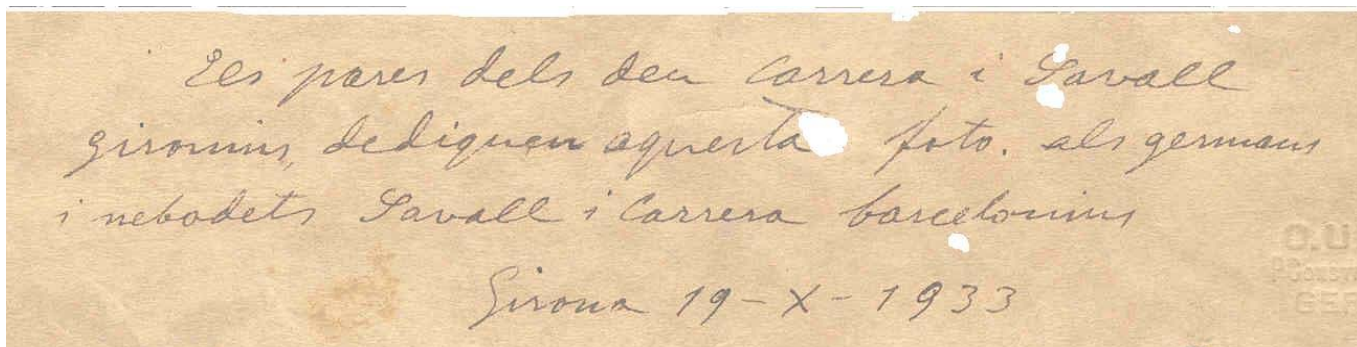 Els pares dels deu Carrera i Savall
gironins, dediquen aquesta foto. als germans
i nebodets Savall i Carrera barcelonins
Girona 19-X-1933
O.U